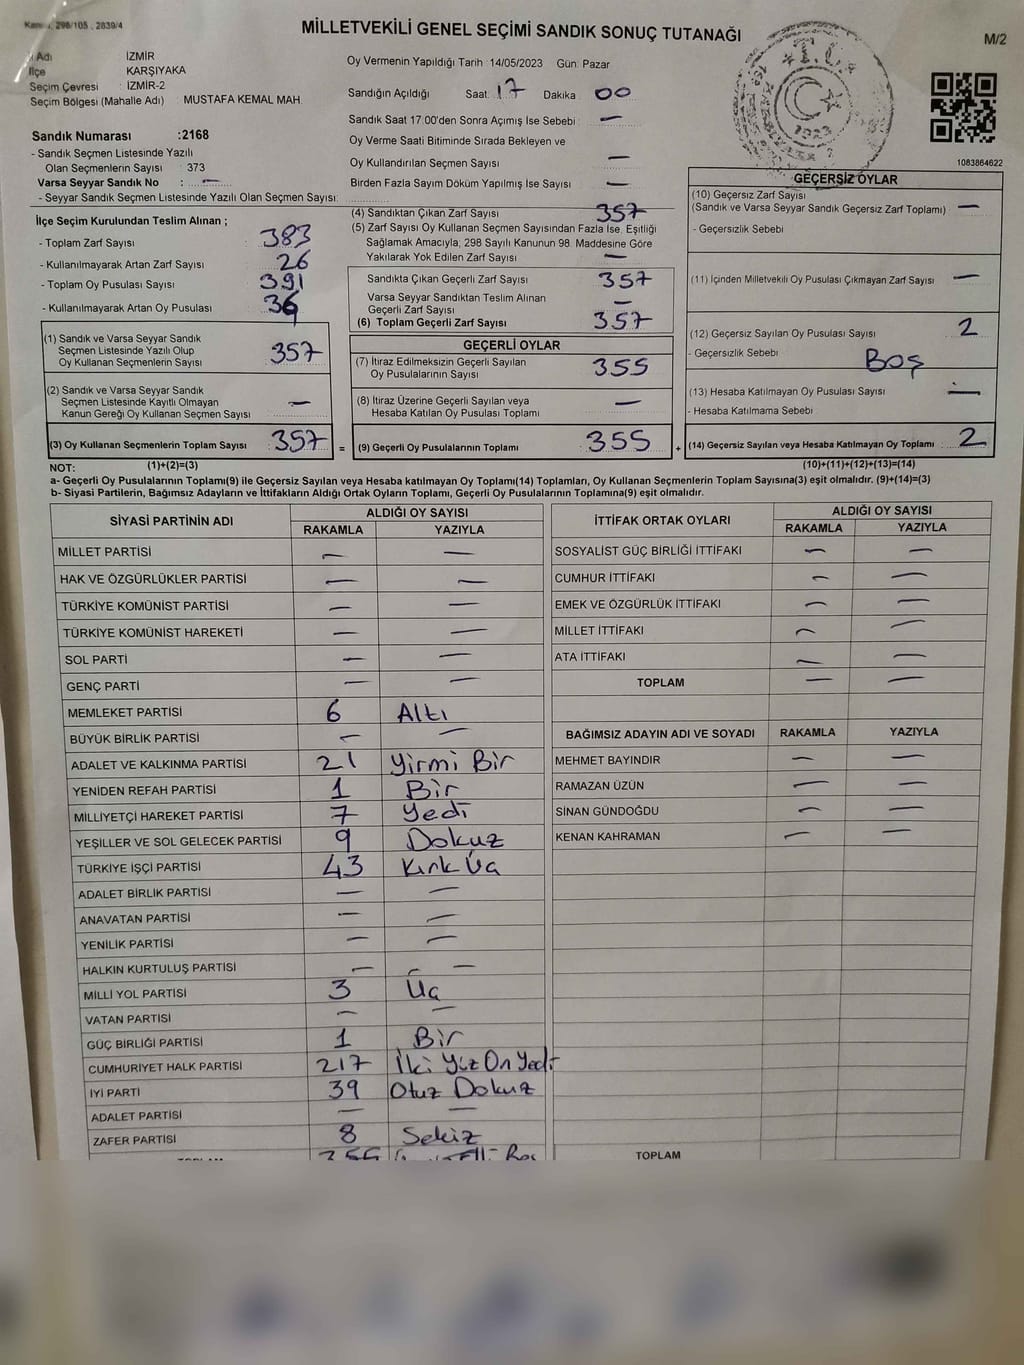 Kanun: 298/105, 2839/4
MİLLETVEKİLİ GENEL SEÇİMİ SANDIK SONUÇ TUTANAĞI
M/2
Adı İZMİR
İlçe KARŞIYAKA
Seçim Çevresi : İZMİR-2
Seçim Bölgesi (Mahalle Adı) : MUSTAFA KEMAL MAH.
Oy Vermenin Yapıldığı Tarih 14/05/2023 Gün: Pazar
Sandığın Açıldığı Saat: 17 Dakika 00
Sandık Saat 17:00'den Sonra Açımış İse Sebebi : —
Oy Verme Saati Bitiminde Sırada Bekleyen ve
Oy Kullandırılan Seçmen Sayısı —
Birden Fazla Sayım Döküm Yapılmış İse Sayısı —
T.C.
1923
1083864622
Sandık Numarası :2168
- Sandık Seçmen Listesinde Yazılı
Olan Seçmenlerin Sayısı : 373
Varsa Seyyar Sandık No : —
- Seyyar Sandık Seçmen Listesinde Yazılı Olan Seçmen Sayısı:
İlçe Seçim Kurulundan Teslim Alınan ;
- Toplam Zarf Sayısı : 383
- Kullanılmayarak Artan Zarf Sayısı : 26
- Toplam Oy Pusulası Sayısı : 391
- Kullanılmayarak Artan Oy Pusulası : 36
(1) Sandık ve Varsa Seyyar Sandık
Seçmen Listesinde Yazılı Olup
Oy Kullanan Seçmenlerin Sayısı : 357
(2) Sandık ve Varsa Seyyar Sandık
Seçmen Listesinde Kayıtlı Olmayan
Kanun Gereği Oy Kullanan Seçmen Sayısı : —
(3) Oy Kullanan Seçmenlerin Toplam Sayısı : 357 =
(1)+(2)=(3)
(4) Sandıktan Çıkan Zarf Sayısı 357
(5) Zarf Sayısı Oy Kullanan Seçmen Sayısından Fazla İse, Eşitliği
Sağlamak Amacıyla, 298 Sayılı Kanunun 98. Maddesine Göre
Yakılarak Yok Edilen Zarf Sayısı : —
Sandıkta Çıkan Geçerli Zarf Sayısı : 357
Varsa Seyyar Sandıktan Teslim Alınan
Geçerli Zarf Sayısı : —
(6) Toplam Geçerli Zarf Sayısı : 357
GEÇERLİ OYLAR
(7) İtiraz Edilmeksizin Geçerli Sayılan
Oy Pusulalarının Sayısı : 355
(8) İtiraz Üzerine Geçerli Sayılan veya
Hesaba Katılan Oy Pusulası Toplamı : —
(9) Geçerli Oy Pusulalarının Toplamı : 355 +
GEÇERSİZ OYLAR
(10) Geçersiz Zarf Sayısı
(Sandık ve Varsa Seyyar Sandık Geçersiz Zarf Toplamı) : —
- Geçersizlik Sebebi :
(11) İçinden Milletvekili Oy Pusulası Çıkmayan Zarf Sayısı : —
(12) Geçersiz Sayılan Oy Pusulası Sayısı : 2
- Geçersizlik Sebebi : Boş
(13) Hesaba Katılmayan Oy Pusulası Sayısı : —
- Hesaba Katılmama Sebebi :
(14) Geçersiz Sayılan veya Hesaba Katılmayan Oy Toplamı : 2
(10)+(11)+(12)+(13)=(14)
NOT:
a- Geçerli Oy Pusulalarının Toplamı(9) ile Geçersiz Sayılan veya Hesaba katılmayan Oy Toplamı(14) Toplamları, Oy Kullanan Seçmenlerin Toplam Sayısına(3) eşit olmalıdır. (9)+(14)=(3)
b- Siyasi Partilerin, Bağımsız Adayların ve İttifakların Aldığı Ortak Oyların Toplamı, Geçerli Oy Pusulalarının Toplamına(9) eşit olmalıdır.
SİYASİ PARTİNİN ADI ALDIĞI OY SAYISI
RAKAMLA YAZIYLA
MİLLET PARTİSİ — —
HAK VE ÖZGÜRLÜKLER PARTİSİ — —
TÜRKİYE KOMÜNİST PARTİSİ — —
TÜRKİYE KOMÜNİST HAREKETİ — —
SOL PARTİ — —
GENÇ PARTİ — —
MEMLEKET PARTİSİ 6 Altı
BÜYÜK BİRLİK PARTİSİ — —
ADALET VE KALKINMA PARTİSİ 21 Yirmi Bir
YENİDEN REFAH PARTİSİ 1 Bir
MİLLİYETÇİ HAREKET PARTİSİ 7 Yedi
YEŞİLLER VE SOL GELECEK PARTİSİ 9 Dokuz
TÜRKİYE İŞÇİ PARTİSİ 43 Kırk Üç
ADALET BİRLİK PARTİSİ — —
ANAVATAN PARTİSİ — —
YENİLİK PARTİSİ — —
HALKIN KURTULUŞ PARTİSİ — —
MİLLİ YOL PARTİSİ 3 Üç
VATAN PARTİSİ — —
GÜÇ BİRLİĞİ PARTİSİ 1 Bir
CUMHURİYET HALK PARTİSİ 217 İki Yüz On Yedi
İYİ PARTİ 39 Otuz Dokuz
ADALET PARTİSİ — —
ZAFER PARTİSİ 8 Sekiz
İTTİFAK ORTAK OYLARI ALDIĞI OY SAYISI
RAKAMLA YAZIYLA
SOSYALİST GÜÇ BİRLİĞİ İTTİFAKI — —
CUMHUR İTTİFAKI — —
EMEK VE ÖZGÜRLÜK İTTİFAKI — —
MİLLET İTTİFAKI — —
ATA İTTİFAKI — —
TOPLAM — —
BAĞIMSIZ ADAYIN ADI VE SOYADI RAKAMLA YAZIYLA
MEHMET BAYINDIR — —
RAMAZAN ÜZÜN — —
SİNAN GÜNDOĞDU — —
KENAN KAHRAMAN — —
TOPLAM